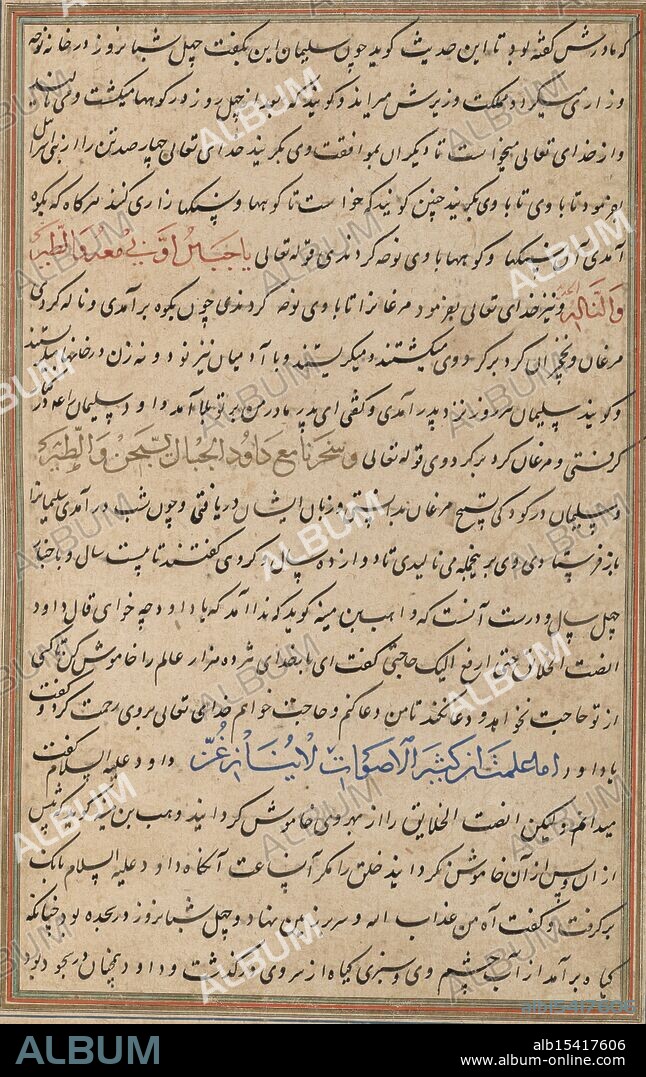 که مادرش گفته بود تا این حدیث گوید چون سلیمان این بگفت چهل شبانروز در خانه نوحه
و زاری میکرد و مملکت وزیرش میراند و گویند که بعد از چهل روز در کوهها میگشت و می نالید
و از خدای تعالی میخواست تا دیگران بموافقت وی بگریند خدای تعالی چهار صد تن را از بنی اسرائیل
بفرمود تا با وی بگریند چنین گویند که خواست تا کوهها و سنگها زاری کنند هرگاه که بکوه
آمدی آن سنگها و کوهها با وی نوحه کردندی قوله تعالی یا جبال اوبی معه والطیر
والنا له الحدید و نیز خدای تعالی بفرمود مرغانرا تا با وی نوحه کردندی چون بکوه برآمدی و ناله کردی
مرغان و نخچیران گرد بر گرد وی میگشتند و میگریستند و با آدمیان نیز نود و نه زن در خانها میگریستند
و گویند سلیمان هر روز نزد پدر آمدی و گفتی ای پدر مادر من بر تو بلا آمد داود سلیمان را در کنار
گرفتی و مرغان گرد بر گرد وی قوله تعالی وسخرنا مع داود الجبال یسبحن والطیر
و سلیمان در کودکی تسبیح مرغان بدانستی و زبان ایشان دریافتی و چون شب درآمدی سلیمانرا
باز فرستادی وی بر این جمله می نالیدی تا دوازده سال و گروهی گفتند تا بیست سال و با خبار
چهل سال و درست آنست که وهب بن منبه گوید که ندا آمد که یا داود چه خواهی قال داود
انصت الخلائق حتی ارفع الیک حاجتی گفت ای بار خدای هژده هزار عالم را خاموش کن تا کسی
از تو حاجت نخواهد و دعا نکند تا من دعا کنم و حاجت خواهم خدای تعالی بر وی رحمت کرد و گفت
یا داود اما علمت ان کثیر الاصوات لا یشغلنی داود علیه السلام گفت
میدانم ولیکن انصت الخلایق را از بهر وی خاموش گردانید وهب بن منبه گوید که پیش
از آن و پس از آن خاموش نگردانید خلق را مگر آن ساعت آنگاه داود علیه السلام بانگ
برگرفت و گفت آه من عذاب الله و سر بر زمین نهاد و چهل شبانروز در سجده بود چنانکه
گیاه برآمد از آب چشم وی و سبزی گیاه از سر وی درگذشت و داود همچنان در سجود بود
ALBUM
ab15417606
www.album-online.com